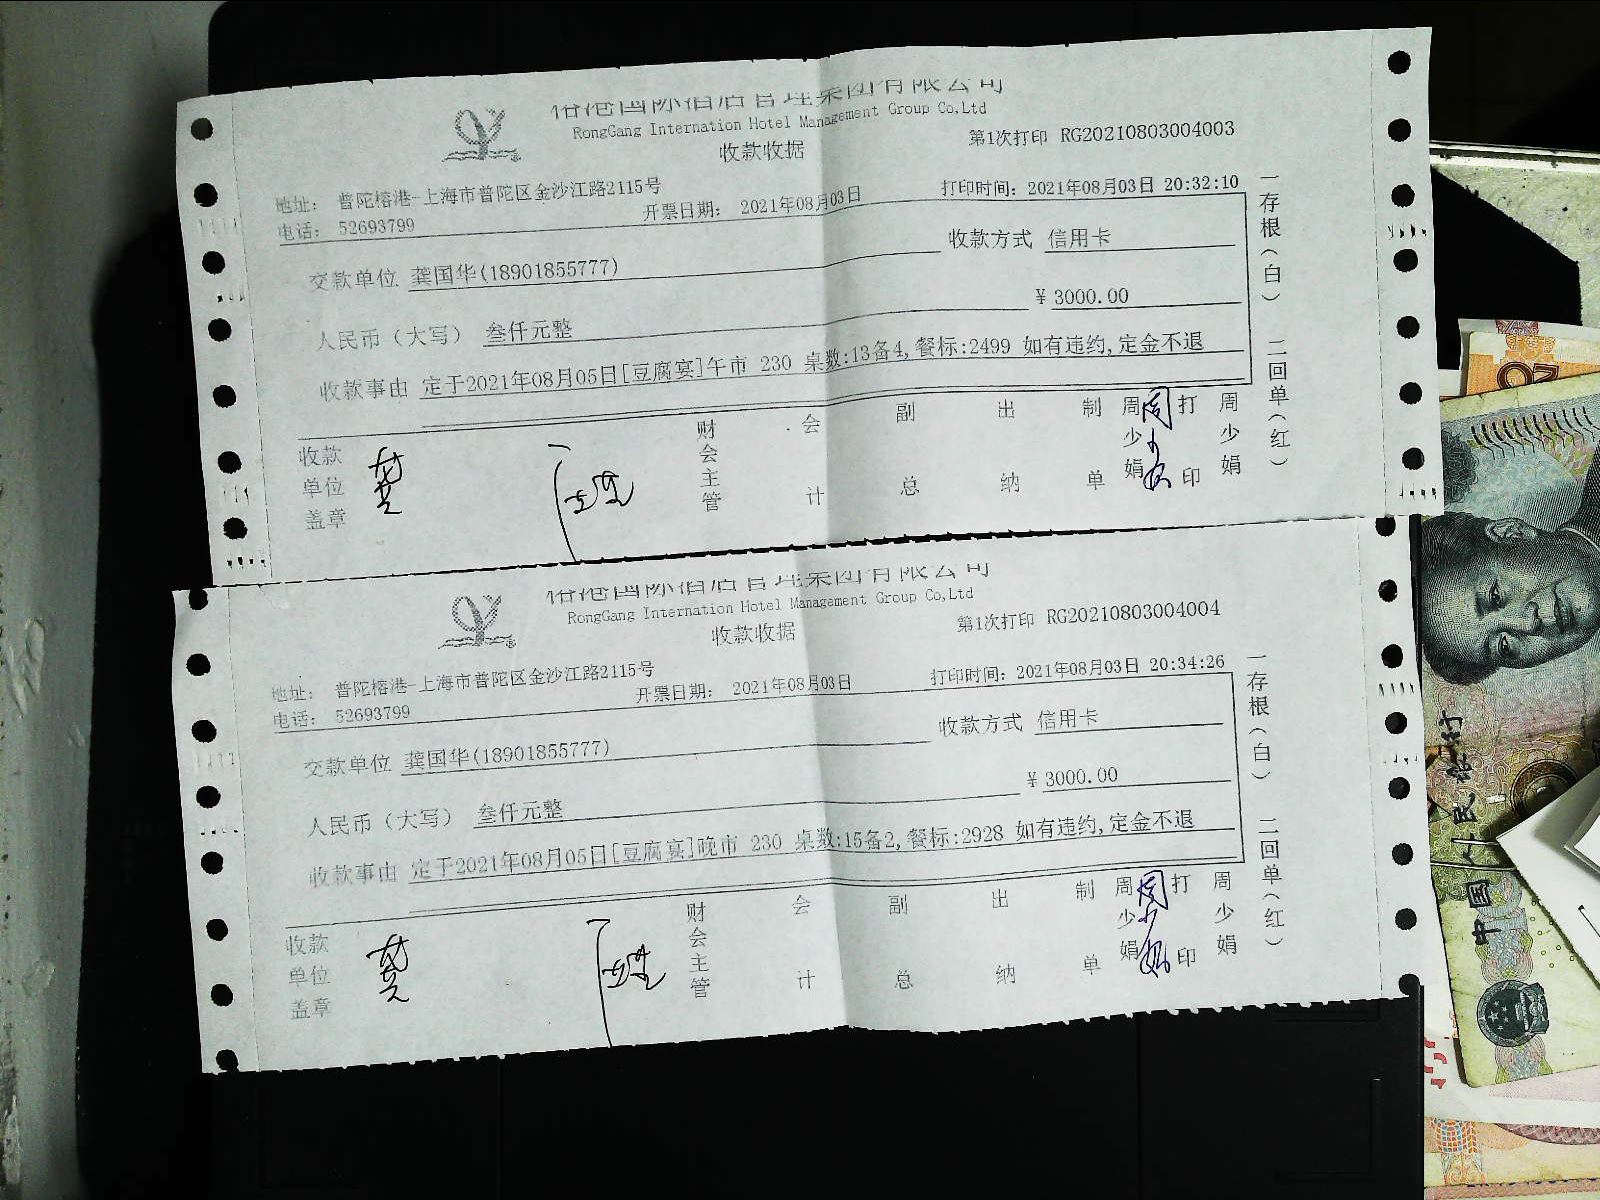 榕港国际酒店管理集团有限公司
RongGang Internation Hotel Management Group Co,Ltd
收款收据
第1次打印 RG20210803004003
地址： 普陀榕港-上海市普陀区金沙江路2115号
电话： 52693799
开票日期： 2021年08月03日
打印时间：2021年08月03日 20:32:10
交款单位 龚国华(18901855777)
收款方式 信用卡
人民币（大写） 叁仟元整
¥ 3000.00
收款事由 定于2021年08月05日[豆腐宴]午市 230 桌数:13备4,餐标:2499 如有违约,定金不退
收款单位盖章
财会主管
会计
副总
出纳
制单
周少娟
周少娟
打印
周少娟
一存根（白）
二回单（红）
榕港国际酒店管理集团有限公司
RongGang Internation Hotel Management Group Co,Ltd
收款收据
第1次打印 RG20210803004004
地址： 普陀榕港-上海市普陀区金沙江路2115号
电话： 52693799
开票日期： 2021年08月03日
打印时间：2021年08月03日 20:34:26
交款单位 龚国华(18901855777)
收款方式 信用卡
人民币（大写） 叁仟元整
¥ 3000.00
收款事由 定于2021年08月05日[豆腐宴]晚市 230 桌数:15备2,餐标:2928 如有违约,定金不退
收款单位盖章
财会主管
会计
副总
出纳
制单
周少娟
周少娟
打印
周少娟
一存根（白）
二回单（红）
中国人民银行